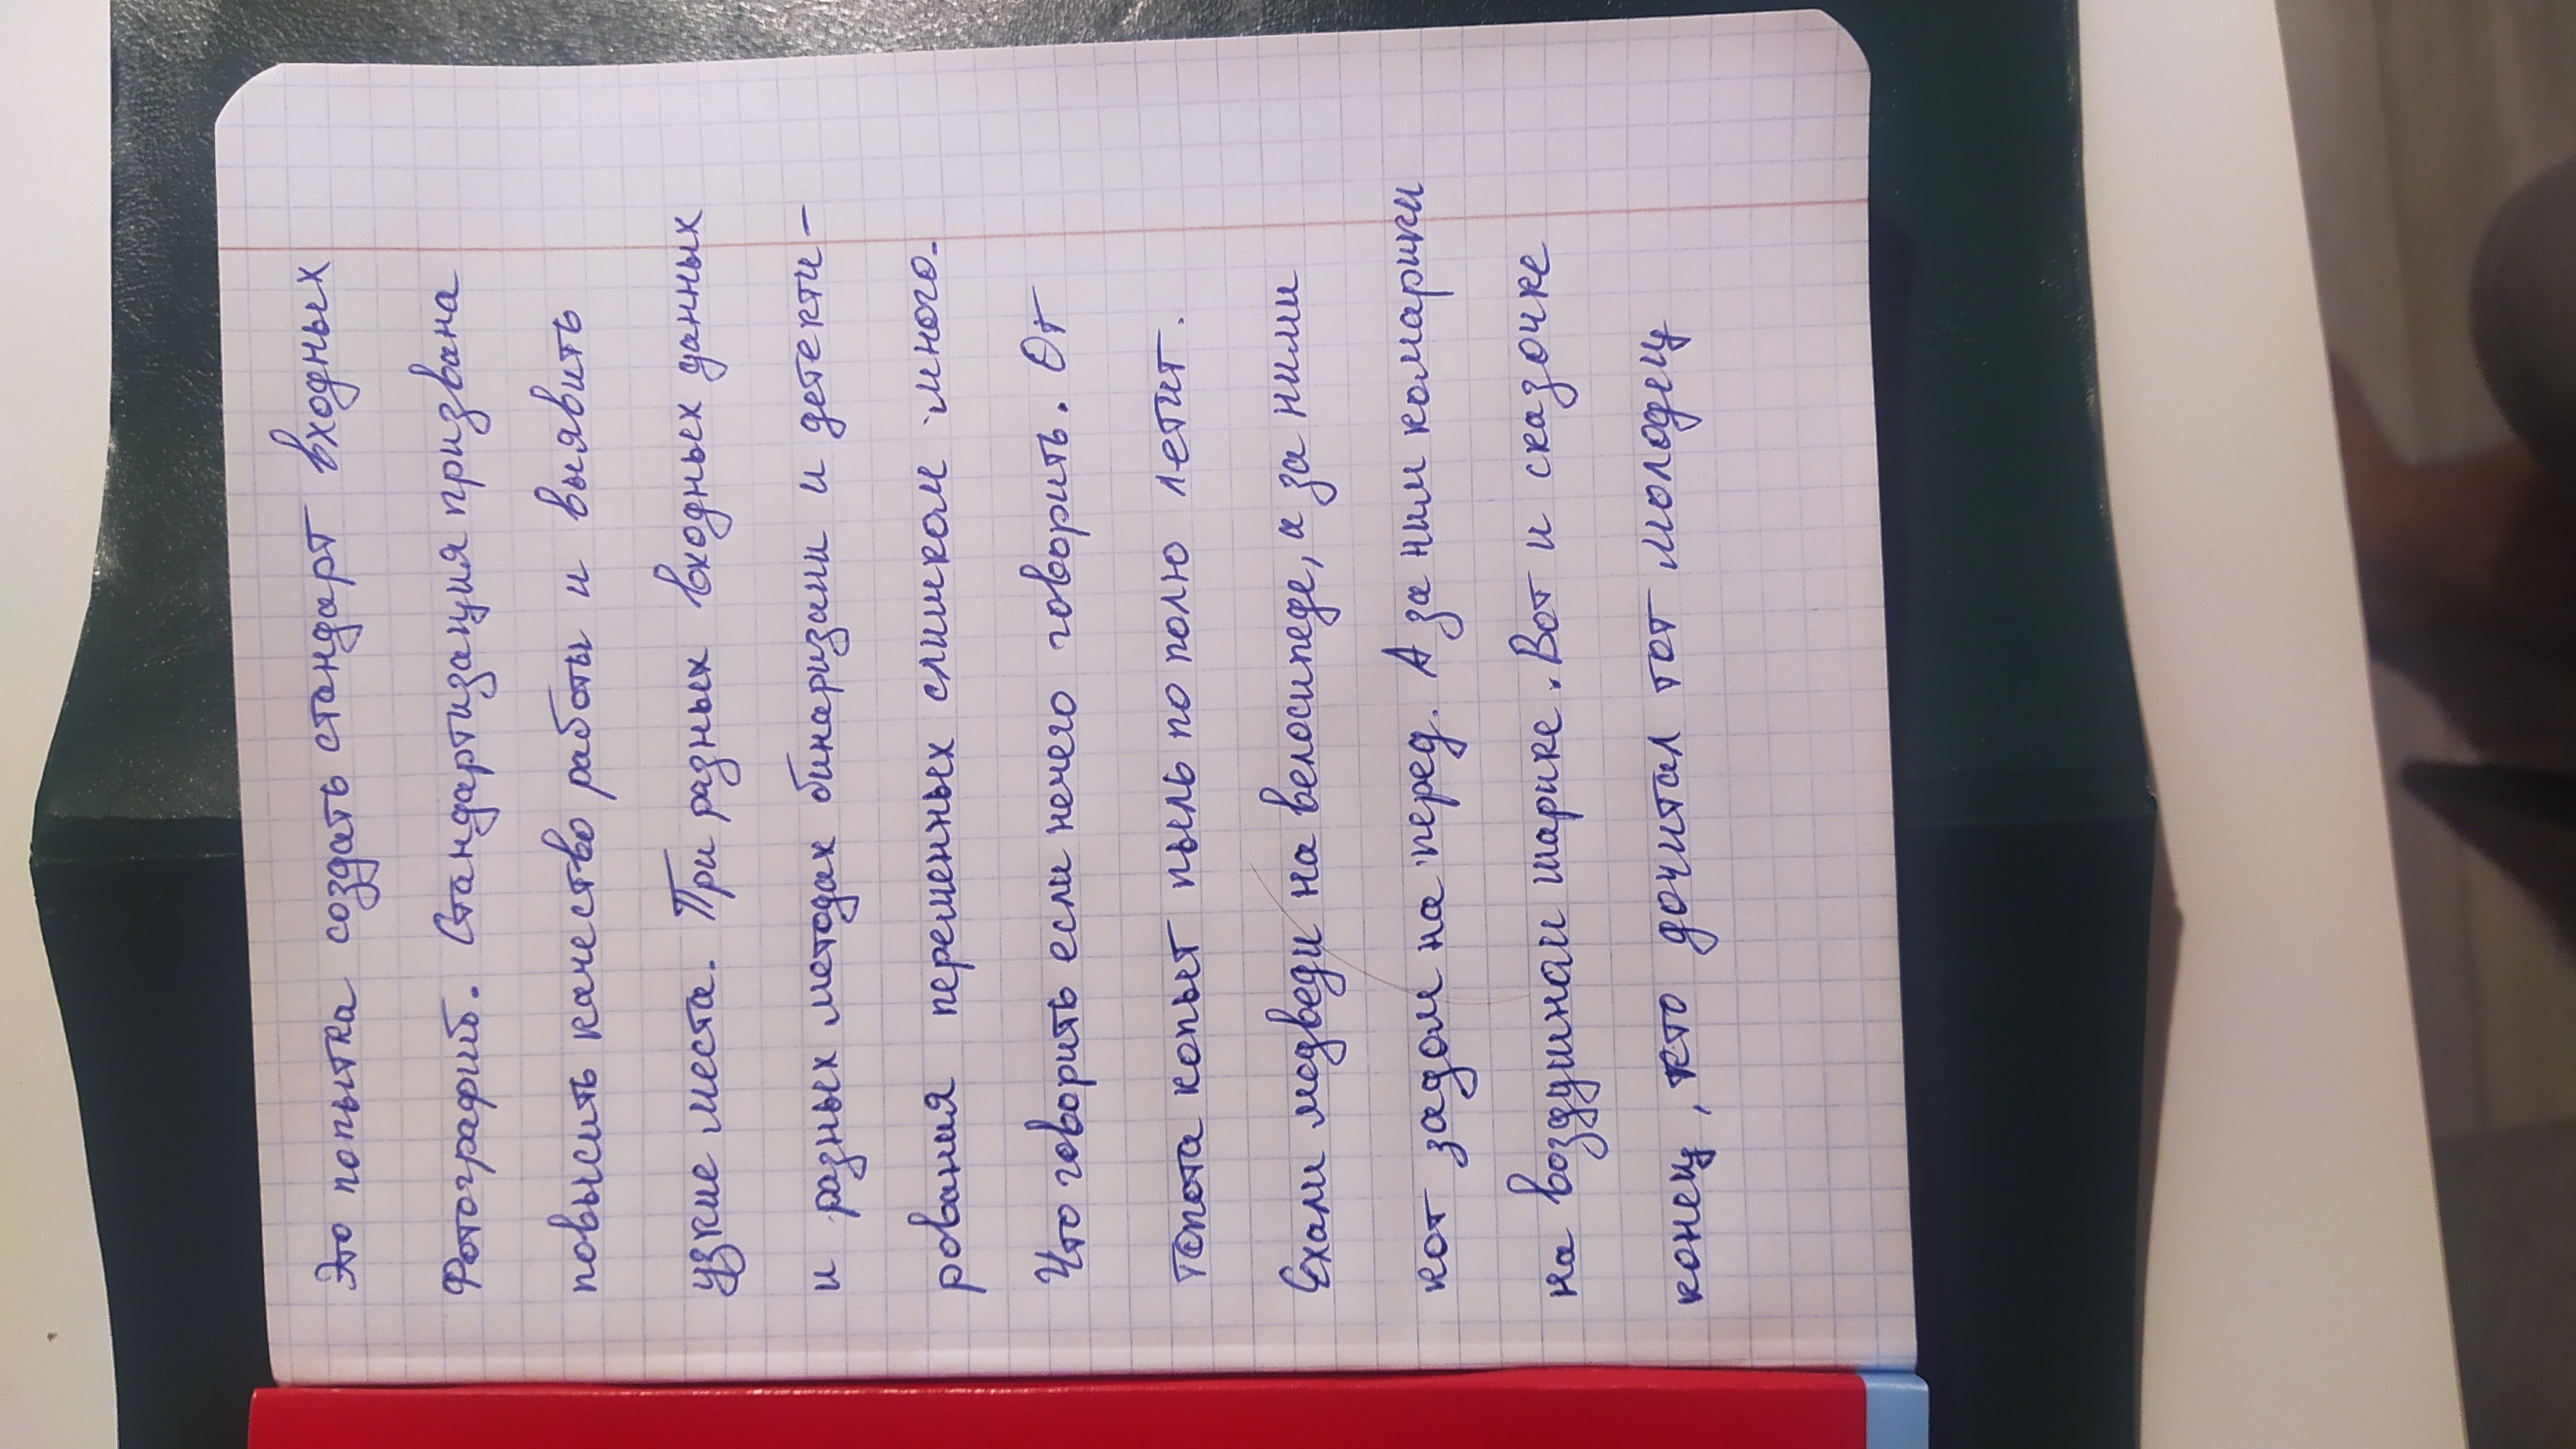 Это попытка создать стандарт входных
фотографий. Стандартизация призвана
повысить качество работы и выявить
узкие места. При разных входных данных
и разных методах бинаризации и детекти-
рования переменных слишком много.
Что говорить если нечего говорить. От
топота копыт пыль по полю летит.
Ехали медведи на велосипеде, а за ними
кот задом на перед. А за ним комарики
на воздушном шарике. Вот и сказочке
конец, кто дочитал тот молодец